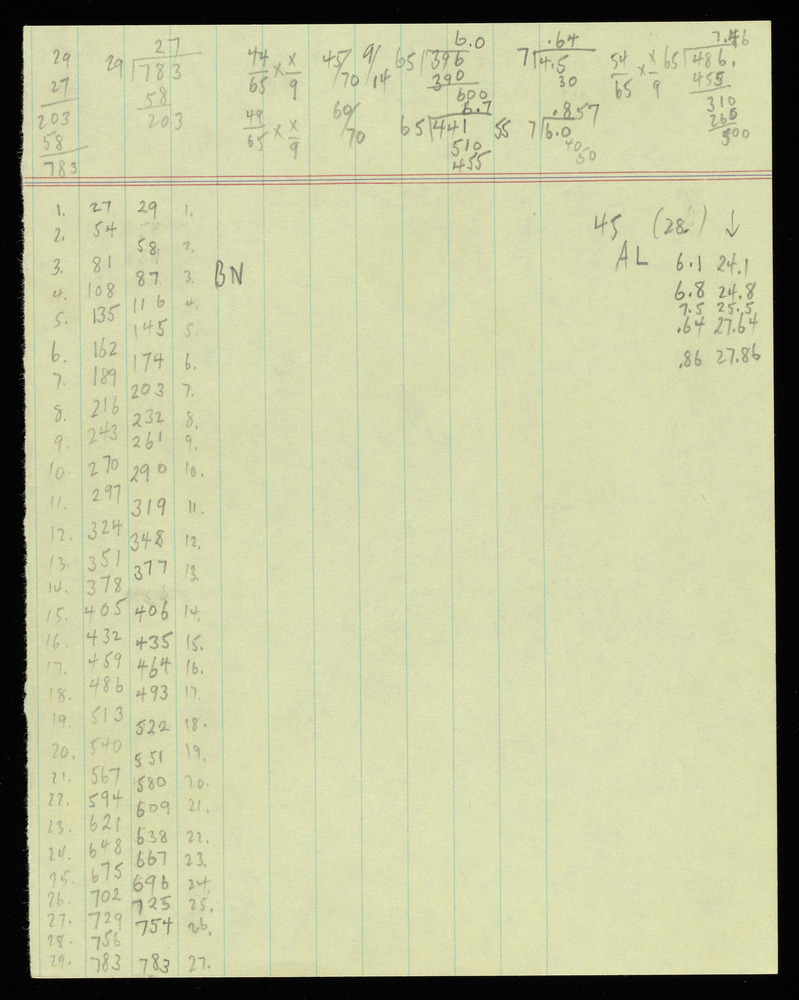 29
27
203
58
783
27
29 783
58
203
44/65 x x/9
49/65 x x/9
45/70 9/14
60/70
6.0
65 396
390
600
6.7
65 441 55
510
455
.64
7 4.5
30
.857
7 6.0
40
50
54/65 x x/9
65 486.
455
310
500
45 (28) ↓
AL 6.1 24.1
6.8 24.8
7.5 25.5
.64 27.64
.86 27.86
BN
1. 27 29 1.
2. 54 58 2.
3. 81 87 3.
4. 108 116 4.
5. 135 145 5.
6. 162 174 6.
7. 189 203 7.
8. 216 232 8.
9. 243 261 9.
10. 270 290 10.
11. 297 319 11.
12. 324 348 12.
13. 351 377 13.
14. 378
15. 405 406 14.
16. 432 435 15.
17. 459 464 16.
18. 486 493 17.
19. 513 522 18.
20. 540 551 19.
21. 567 580 20.
22. 594 609 21.
23. 621 638 22.
24. 648 667 23.
25. 675 696 24.
26. 702 725 25.
27. 729 754 26.
28. 756
29. 783 783 27.